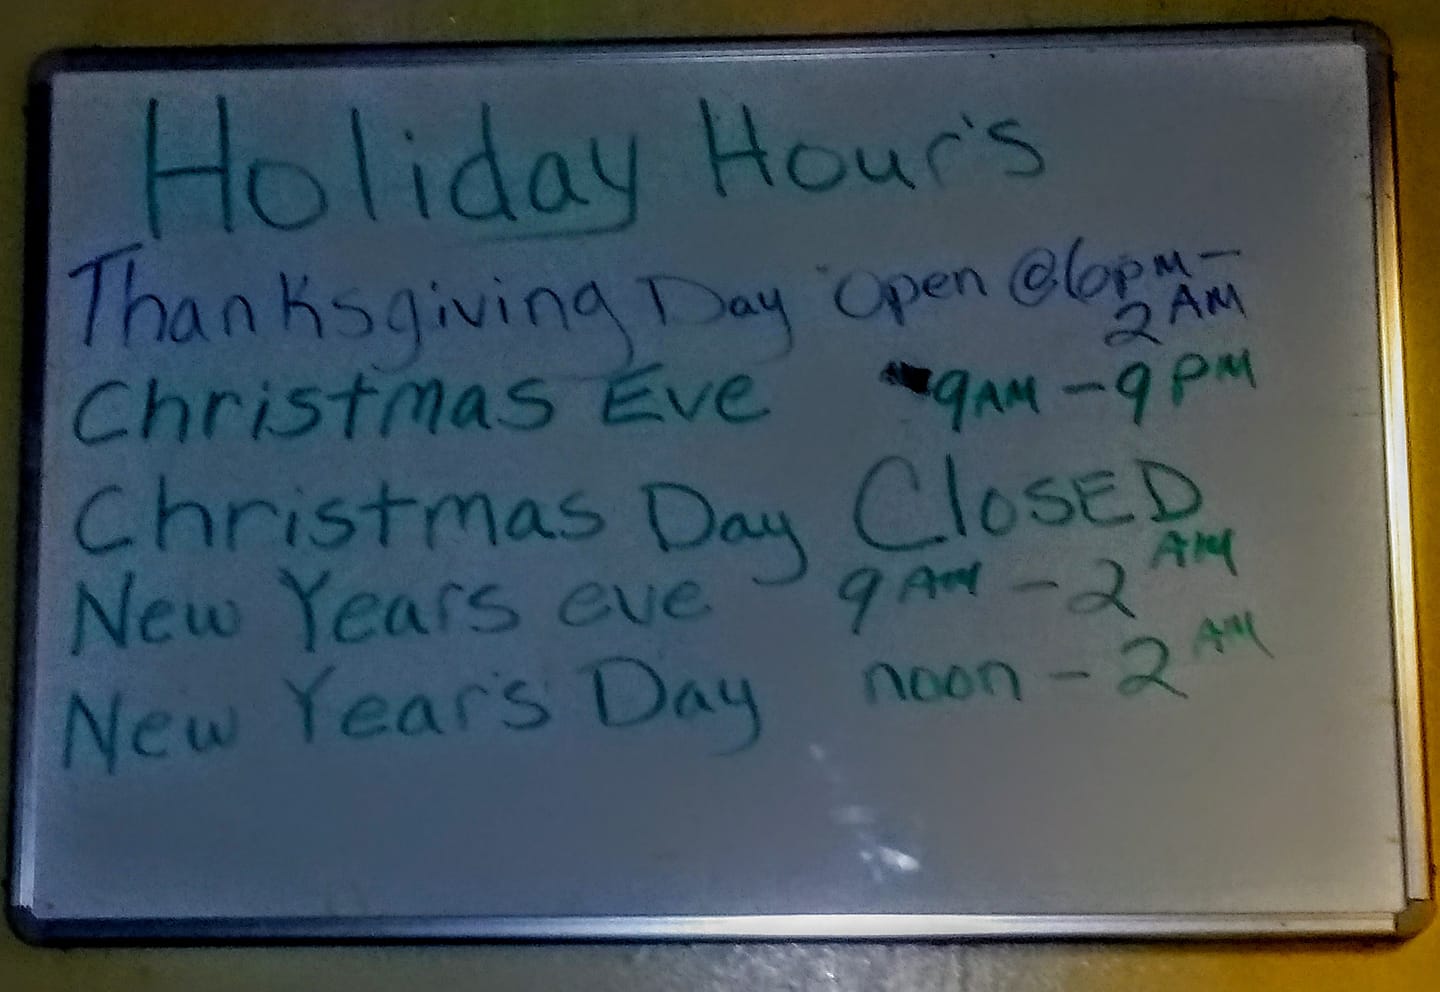 Holiday Hour's
Thanksgiving Day Open @6pm-
2 AM
Christmas Eve 9AM - 9PM
Christmas Day ClosED
New Years eve 9 AM - 2 AM
New Year's Day noon - 2 AM